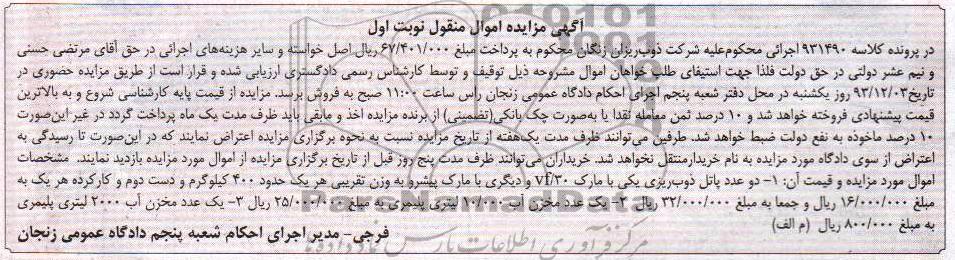 آگهی مزایده اموال منقول نوبت اول
در پرونده کلاسه ۹۳۱۴۹۰ اجرائی محکوم‌علیه شرکت ذوب‌ریزان زنگان محکوم به پرداخت مبلغ ۶۷/۴۰۱/۰۰۰ ریال اصل خواسته و سایر هزینه‌های اجرائی در حق آقای مرتضی حسنی
و نیم عشر دولتی در حق دولت فلذا جهت استیفای طلب خواهان اموال مشروحه ذیل توقیف و توسط کارشناس رسمی دادگستری ارزیابی شده و قرار است از طریق مزایده حضوری در
تاریخ ۹۳/۱۲/۰۳ روز یکشنبه در محل دفتر شعبه پنجم اجرای احکام دادگاه عمومی زنجان راس ساعت ۱۱:۰۰ صبح به فروش برسد. مزایده از قیمت پایه کارشناسی شروع و به بالاترین
قیمت پیشنهادی فروخته خواهد شد و ۱۰ درصد ثمن معامله نقدا یا به‌صورت چک بانکی(تضمینی) از برنده مزایده اخذ و مابقی باید ظرف مدت یک ماه پرداخت گردد در غیر این‌صورت
۱۰ درصد ماخوذه به نفع دولت ضبط خواهد شد. طرفین می‌توانند ظرف مدت یک‌هفته از تاریخ مزایده نسبت به نحوه برگزاری مزایده اعتراض نمایند که در این‌صورت تا رسیدگی به
اعتراض از سوی دادگاه مورد مزایده به نام خریدار منتقل نخواهد شد. خریداران می‌توانند ظرف مدت پنج روز قبل از تاریخ برگزاری مزایده از اموال مورد مزایده بازدید نمایند. مشخصات
اموال مورد مزایده و قیمت آن: ۱- دو عدد پاتل ذوب‌ریزی یکی با مارک vf/۳۰ و دیگری با مارک پیشرو به وزن تقریبی هر یک حدود ۴۰۰ کیلوگرم و دست دوم و کارکرده هر یک به
مبلغ ۱۶/۰۰۰/۰۰۰ ریال و جمعا به مبلغ ۳۲/۰۰۰/۰۰۰ ریال ۲- یک عدد مخزن آب ۱۰/۰۰۰ لیتری پلیمری به مبلغ ۲۵/۰۰۰/۰۰۰ ریال ۳- یک عدد مخزن آب ۲۰۰۰ لیتری پلیمری
به مبلغ ۸۰۰/۰۰۰ ریال (م الف)
فرجی- مدیر اجرای احکام شعبه پنجم دادگاه عمومی زنجان